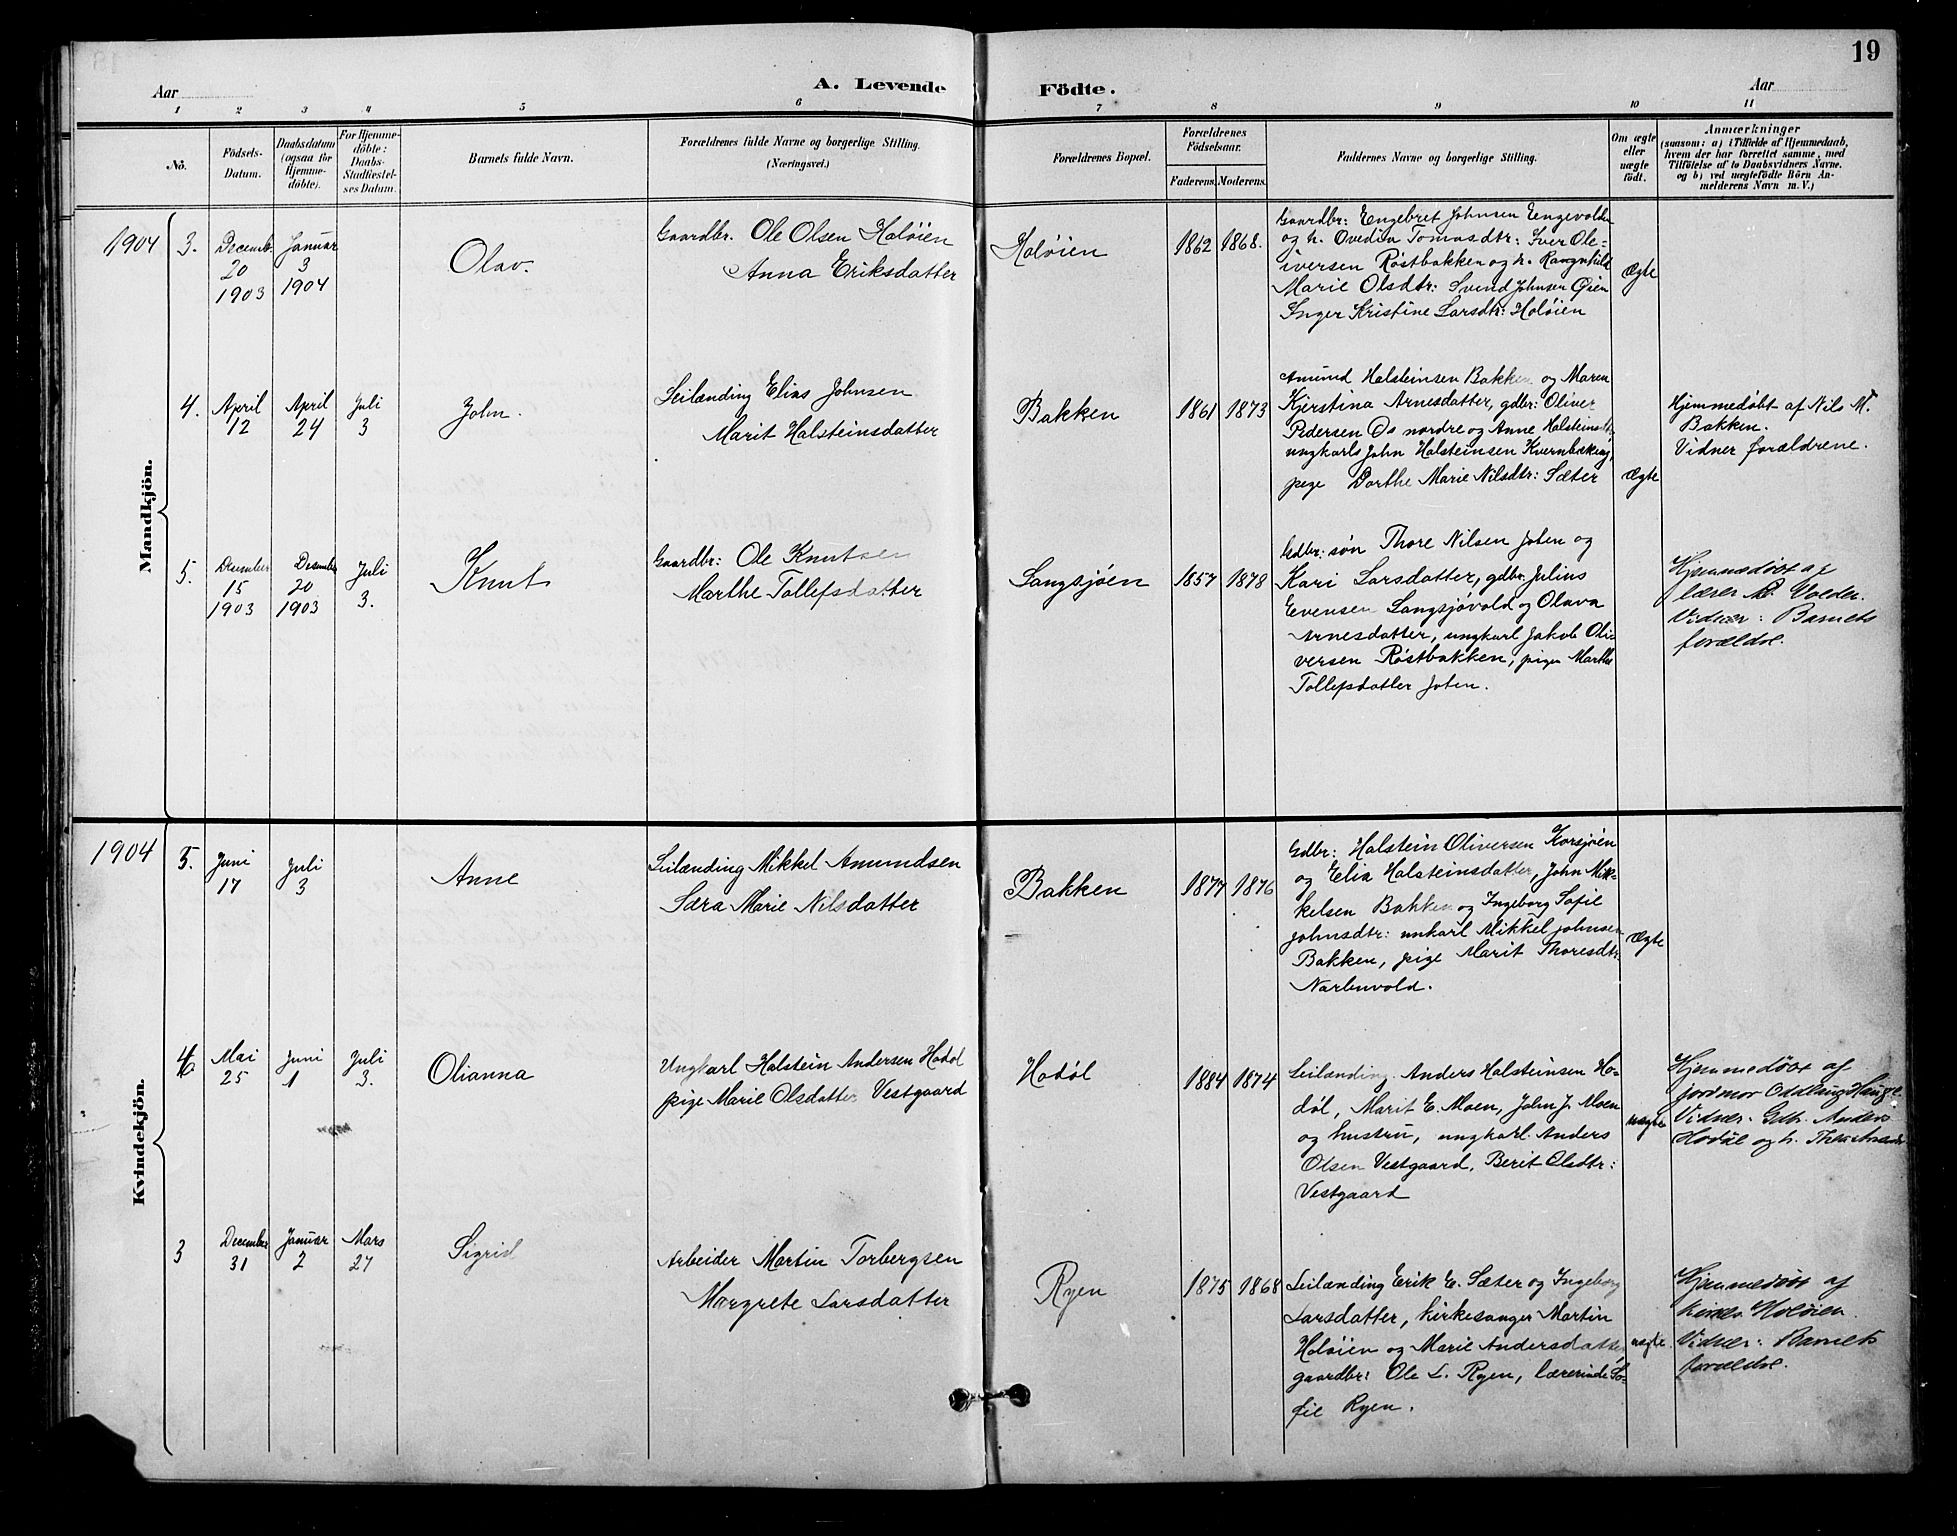 19
Aar
A. Levende Födte.
Aar
1 2 3 4 5 6 7 8 9 10 11
Nô.
Födsels-
Datum.
Daabsdatum
(ogsaa for
Hjemme-
döbte).
For Hjemme-
döbte:
Daabs-
Stadfæstel-
ses Datum.
Barnets fulde Navn.
Forældrenes fulde Navne og borgerlige Stilling.
(Næringsvei.)
Forældrenes Bopæl.
Forældrenes
Födselsaar.
Faderens. Moderens.
Faddernes Navne og borgerlige Stilling.
Om ægte
eller
uægte
födt.
Anmærkninger
(saasom: a) i Tilfælde af Hjemmedaab,
hvem der har forrettet samme, med
Tilföielse af to Daabsvidners Navne.
og b) ved uægtefödte Börn An-
melderens Navn m. V.)
Mandkjön.
1904
3.
Decemb.
20
1903
Januar
3
1904
Olav.
Gaardbr. Ole Olsen Holøien
Anna Eriksdatter
Holøien
1862 1868.
Gaardbr: Engebret Johnsen
og h. Ovedia Tomasdtr: Iver Ole-
iversen Røstbakken og h. Rangnhild
Marie Olsdtr: Svend Johnsen Øien
Inger Kristine Larsdtr: Holøien
Ægte
4.
April
12
April
24
Juli
3
John.
Leilænding Elias Johnsen
Marit Halsteinsdatter
Bakken
1861 1873
Amund Halsteinsen Bakken og Maren
Kjerstina Arnesdatter, gdbr: Oliver
Pedersen Os nordre og Anne
ungkarls John Halsteinsen
pige Dorthe Marie Nilsdtr: Sæter
Ægte
Hjemmedøbt af Nils M.
Bakken.
Vidner forældrene.
5.
Desember
15
1903
Desember
20
1903
Juli
3.
Knut
Gaardbr: Ole Knutsen
Marthe Tollefsdatter
Langsjøen
1857 1878
Gdbr: søn Thore Nilsen Joten og
Kari Larsdatter, gdbr. Julius
Evensen Langsjøvold og Olava
Arnesdatter, ungkarl Jakob Oli-
versen Røstbakken, pige Marthe
Tollefsdatter Joten.
Hjemmedøbt af
lærer
Vidner: Barnets
forældre.
Kvindekjön.
1904
5.
Juni
17
Juli
3
Anne
Leilænding Mikkel Amundsen
Sara Marie Nilsdatter
Bakken
1877 1876
Gdbr: Halstein Oliversen Korsjøen
og Elia Halsteinsdatter, John Mik-
kelsen Bakken og Ingeborg Sofie
Johnsdtr: unkarl Mikkel Johnsen
Bakken, pige Marit Thoresdtr
Narbuvold.
Ægte
4
Mai
25
Juni
1
Juli
3.
Olianna
Ungkarl Halstein Andersen Hodøl
pige Marie Olsdatter Vestgaard
Hodøl
1884 1874
Leilænding Anders Halsteinsen Ho-
døl, Marit E. Moen, John J. Moen
og hustru, ungkarl. Anders
Olsen Vestgaard, Berit Olsdtr:
Vestgaard
uægte
Hjemmedøbt af
jordmor Oddlaug Hauge.
Vidner: Gdb. Anders
Hodøl og h.
3
December
31
Januar
2
Mars
27
Sigrid
Arbeider Martin Torbergsen
Margrete Larsdatter
Ryen
1875 1868
Leilænding Erik E. Sæter og Ingeborg
Larsdatter, kirkesanger Martin
Holøien og Marie Andersdatter
gaardbr: Ole L. Ryen, lærerinde So-
fie Ryen.
uægte.
Hjemmedøbt af
Holøien.
Vidner: Barnets
forældre.